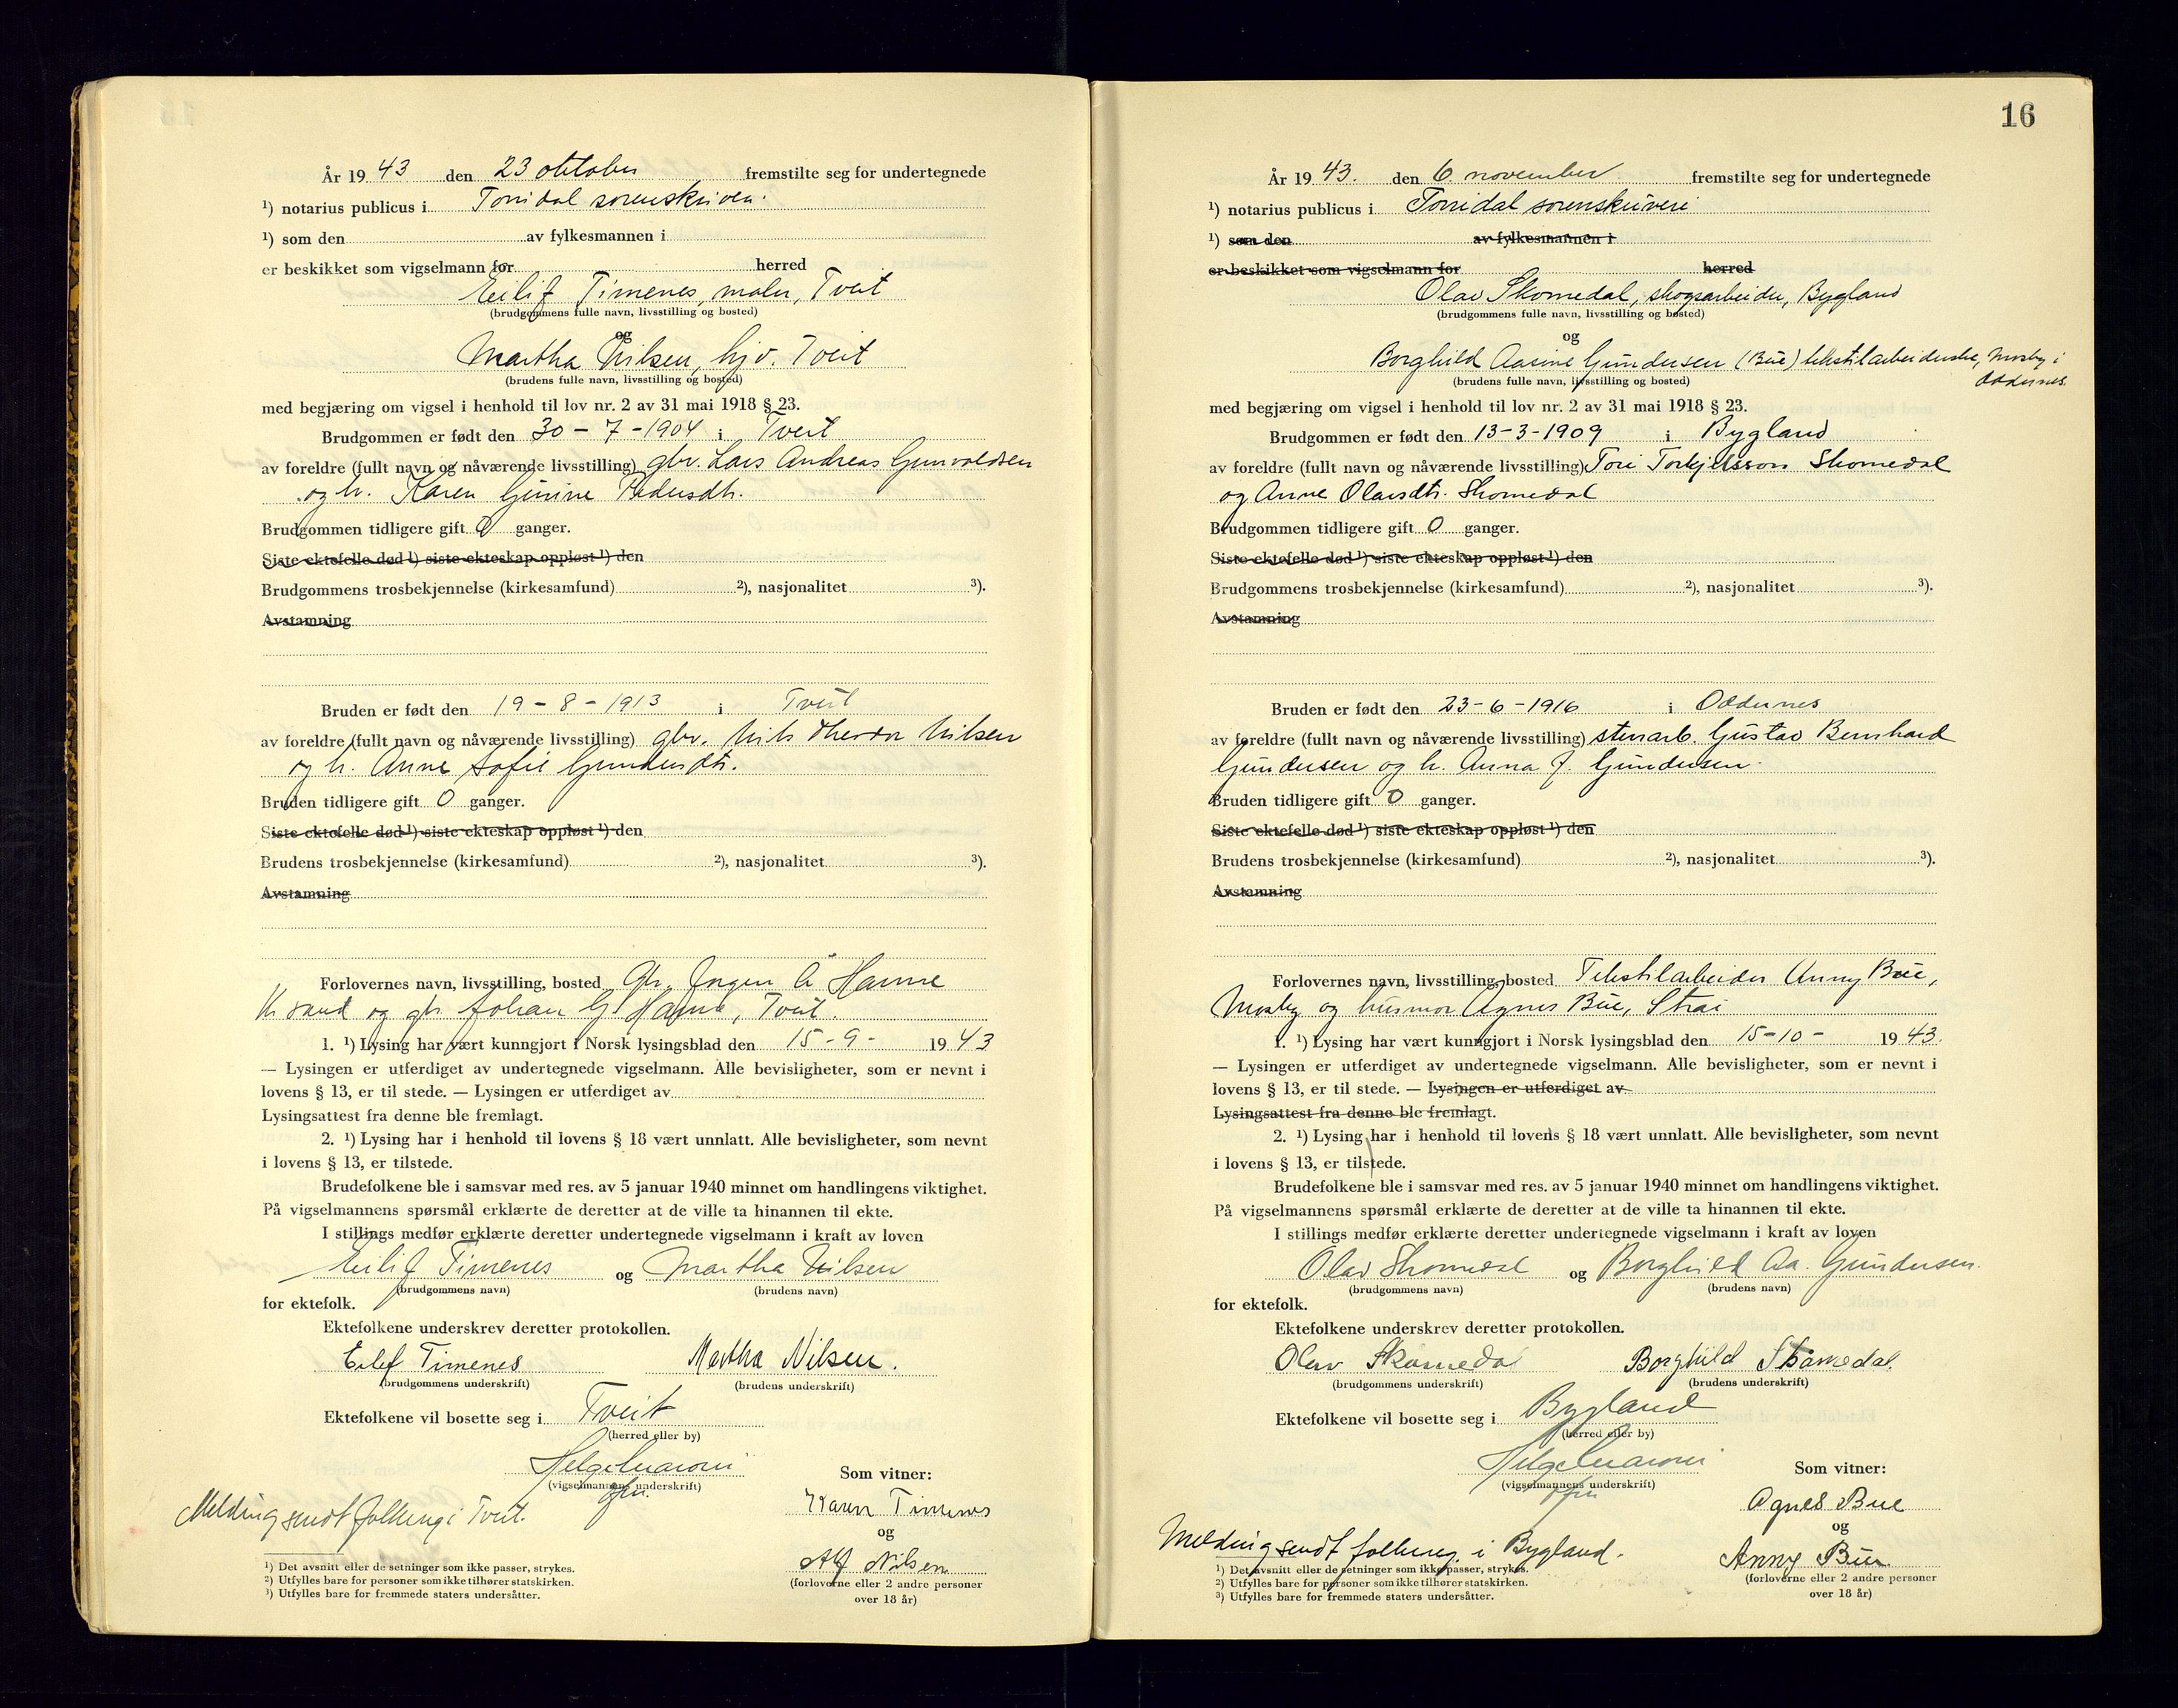 År 19 43 den 23 oktober fremstilte seg for undertegnede
¹) notarius publicus i Torridal sorenskriveri.
¹) som den av fylkesmannen i
er beskikket som vigselmann for herred
Eilif Timenes, maler, Tveit
(brudgommens fulle navn, livsstilling og bosted)
og
Martha Nilsen, hjv. Tveit
(brudens fulle navn, livsstilling og bosted)
med begjæring om vigsel i henhold til lov nr. 2 av 31 mai 1918 § 23.
Brudgommen er født den 30 - 7 - 1904 i Tveit
av foreldre (fullt navn og nåværende livsstilling) gbr. Lars Andreas Gunvaldsen
og h. Karen Gurine Pedersdtr.
Brudgommen tidligere gift 0 ganger.
Siste ektefelle død ¹) siste ekteskap oppløst ¹) den
Brudgommens trosbekjennelse (kirkesamfund) ²), nasjonalitet ³).
Avstamning
Bruden er født den 19 - 8 - 1913 i Tveit
av foreldre (fullt navn og nåværende livsstilling) gbr. Nils Theodor Nilsen
og h. Anne Sofie Gundersdtr.
Bruden tidligere gift 0 ganger.
Siste ektefelle død ¹) siste ekteskap oppløst ¹) den
Brudens trosbekjennelse (kirkesamfund) ²), nasjonalitet ³).
Avstamning
Forlovernes navn, livsstilling, bosted Gbr. Jørgen Hamre
Kr.sand og gbr. Johan G. Hamre, Tveit.
1. ¹) Lysing har vært kunngjort i Norsk lysingsblad den 15 - 9 - 19 43
— Lysingen er utferdiget av undertegnede vigselmann. Alle bevisligheter, som er nevnt i
lovens § 13, er til stede. — Lysingen er utferdiget av
Lysingsattest fra denne ble fremlagt.
2. ¹) Lysing har i henhold til lovens § 18 vært unnlatt. Alle bevisligheter, som nevnt
i lovens § 13, er tilstede.
Brudefolkene ble i samsvar med res. av 5 januar 1940 minnet om handlingens viktighet.
På vigselmannens spørsmål erklærte de deretter at de ville ta hinannen til ekte.
I stillings medfør erklærte deretter undertegnede vigselmann i kraft av loven
Eilif Timenes og Martha Nilsen
(brudgommens navn) (brudens navn)
for ektefolk.
Ektefolkene underskrev deretter protokollen.
Eilef Timenes Martha Nilsen.
(brudgommens underskrift) (brudens underskrift)
Ektefolkene vil bosette seg i Tveit
(herred eller by)
(vigselmannens underskrift)
Som vitner:
Karen Timenes
og
Alf Nilsen
(forloverne eller 2 andre personer
over 18 år)
Melding sendt folkereg i Tveit.
¹) Det avsnitt eller de setninger som ikke passer, strykes.
²) Utfylles bare for personer som ikke tilhører statskirken.
³) Utfylles bare for fremmede staters undersåtter.
16
År 19 43. den 6. november fremstilte seg for undertegnede
¹) notarius publicus i Torridal sorenskriveri
¹) som den av fylkesmannen i
er beskikket som vigselmann for herred
Olav Skomedal, skogsarbeider, Bygland
(brudgommens fulle navn, livsstilling og bosted)
og
Borghild Aasine Gundersen (Bue) tekstilarbeiderske, Mosby i
Oddernes.
(brudens fulle navn, livsstilling og bosted)
med begjæring om vigsel i henhold til lov nr. 2 av 31 mai 1918 § 23.
Brudgommen er født den 13-3-1909 i Bygland
av foreldre (fullt navn og nåværende livsstilling) Tore Torkjelsson Skomedal
og Anne Olavsdtr. Skomedal
Brudgommen tidligere gift 0 ganger.
Siste ektefelle død ¹) siste ekteskap oppløst ¹) den
Brudgommens trosbekjennelse (kirkesamfund) ²), nasjonalitet ³).
Avstamning
Bruden er født den 23-6-1916 i Oddernes
av foreldre (fullt navn og nåværende livsstilling) stenarb. Gustav Bernhard
Gundersen og h. Anna J. Gundersen.
Bruden tidligere gift 0 ganger.
Siste ektefelle død ¹) siste ekteskap oppløst ¹) den
Brudens trosbekjennelse (kirkesamfund) ²), nasjonalitet ³).
Avstamning
Forlovernes navn, livsstilling, bosted Tekstilarbeider Anny Bue,
Mosby og husmor Agnes Bue, Strai
1. ¹) Lysing har vært kunngjort i Norsk lysingsblad den 15-10- 19 43.
— Lysingen er utferdiget av undertegnede vigselmann. Alle bevisligheter, som er nevnt i
lovens § 13, er til stede. — Lysingen er utferdiget av
Lysingsattest fra denne ble fremlagt.
2. ¹) Lysing har i henhold til lovens § 18 vært unnlatt. Alle bevisligheter, som nevnt
i lovens § 13, er tilstede.
Brudefolkene ble i samsvar med res. av 5 januar 1940 minnet om handlingens viktighet.
På vigselmannens spørsmål erklærte de deretter at de ville ta hinannen til ekte.
I stillings medfør erklærte deretter undertegnede vigselmann i kraft av loven
Olav Skomedal og Borghild Aa. Gundersen.
(brudgommens navn) (brudens navn)
for ektefolk.
Ektefolkene underskrev deretter protokollen.
Olav Skomedal Borghild Skomedal.
(brudgommens underskrift) (brudens underskrift)
Ektefolkene vil bosette seg i Bygland
(herred eller by)
(vigselmannens underskrift)
Som vitner:
Agnes Bue
og
Anny Bue
(forloverne eller 2 andre personer
over 18 år)
Melding sendt folkereg. i Bygland.
¹) Det avsnitt eller de setninger som ikke passer, strykes.
²) Utfylles bare for personer som ikke tilhører statskirken.
³) Utfylles bare for fremmede staters undersåtter.